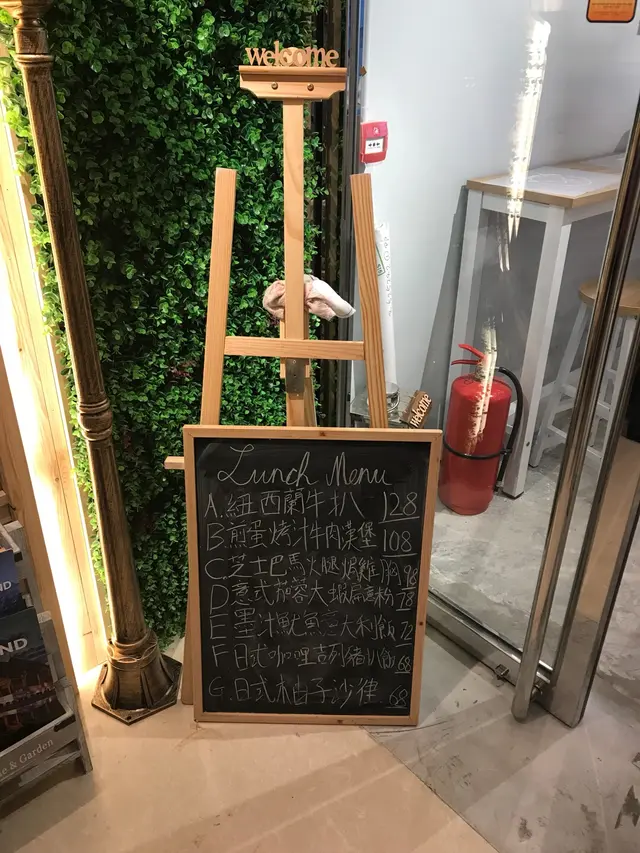 welcome
welcome
Lunch Menu
A.紐西蘭牛扒 128
B煎蛋烤汁牛肉漢堡 108
C.芝士巴馬火腿焗雞胸 98
D意式茄蓉大蝦扁麵粉 78
E墨汁魷魚意大利飯 72
F日式咖哩吉列豬扒飯 68
G.日式柚子沙律 68
ND
ND
e & Garden